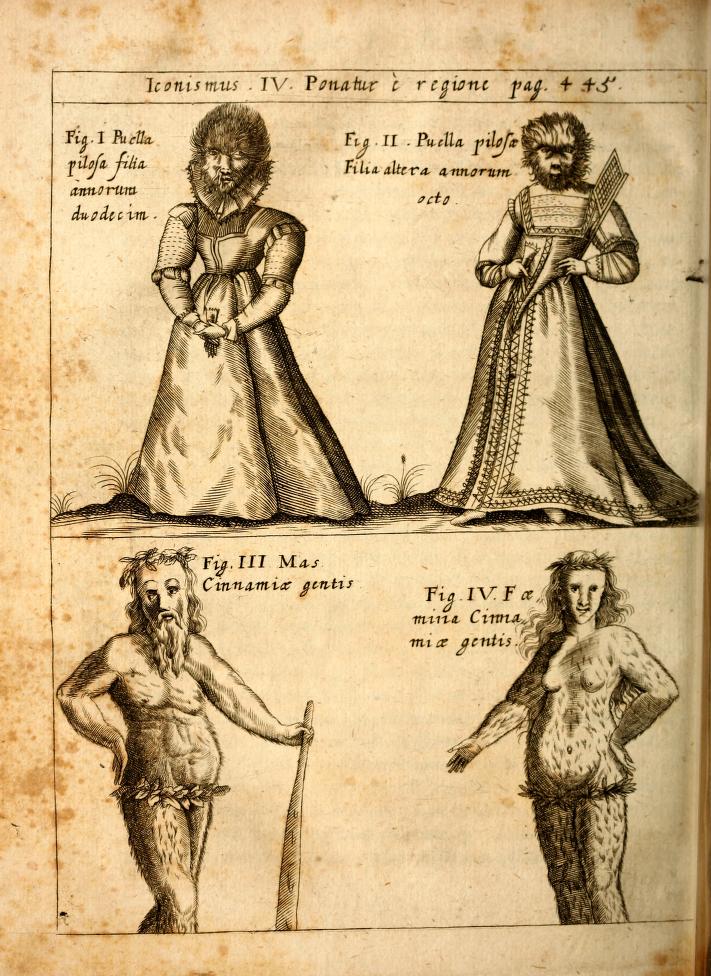 Iconismus . IV. Ponatur è regione pag. 445.
Fig. I Puella
pilosa filia
annorum
duodecim.
Fig. II . Puella pilosæ
Filia altera annorum
octo.
Fig. III Mas
Cinnamiæ gentis
Fig. IV. Fœ
mina Cinna
miæ gentis.